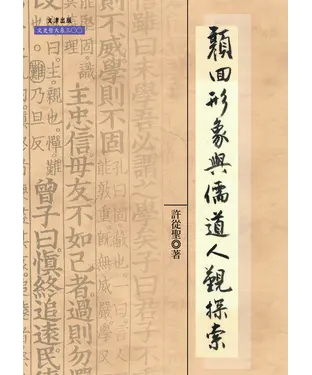 文津出版
文史哲大系三〇〇
顏回形象與儒道人觀探索
許從聖◎著
雖曰未學吾必謂之學矣子曰君子不
不威學則不固
主忠信毋友不如己者過則勿
主親也憚難
乃旦反
曾子曰慎終追遠民